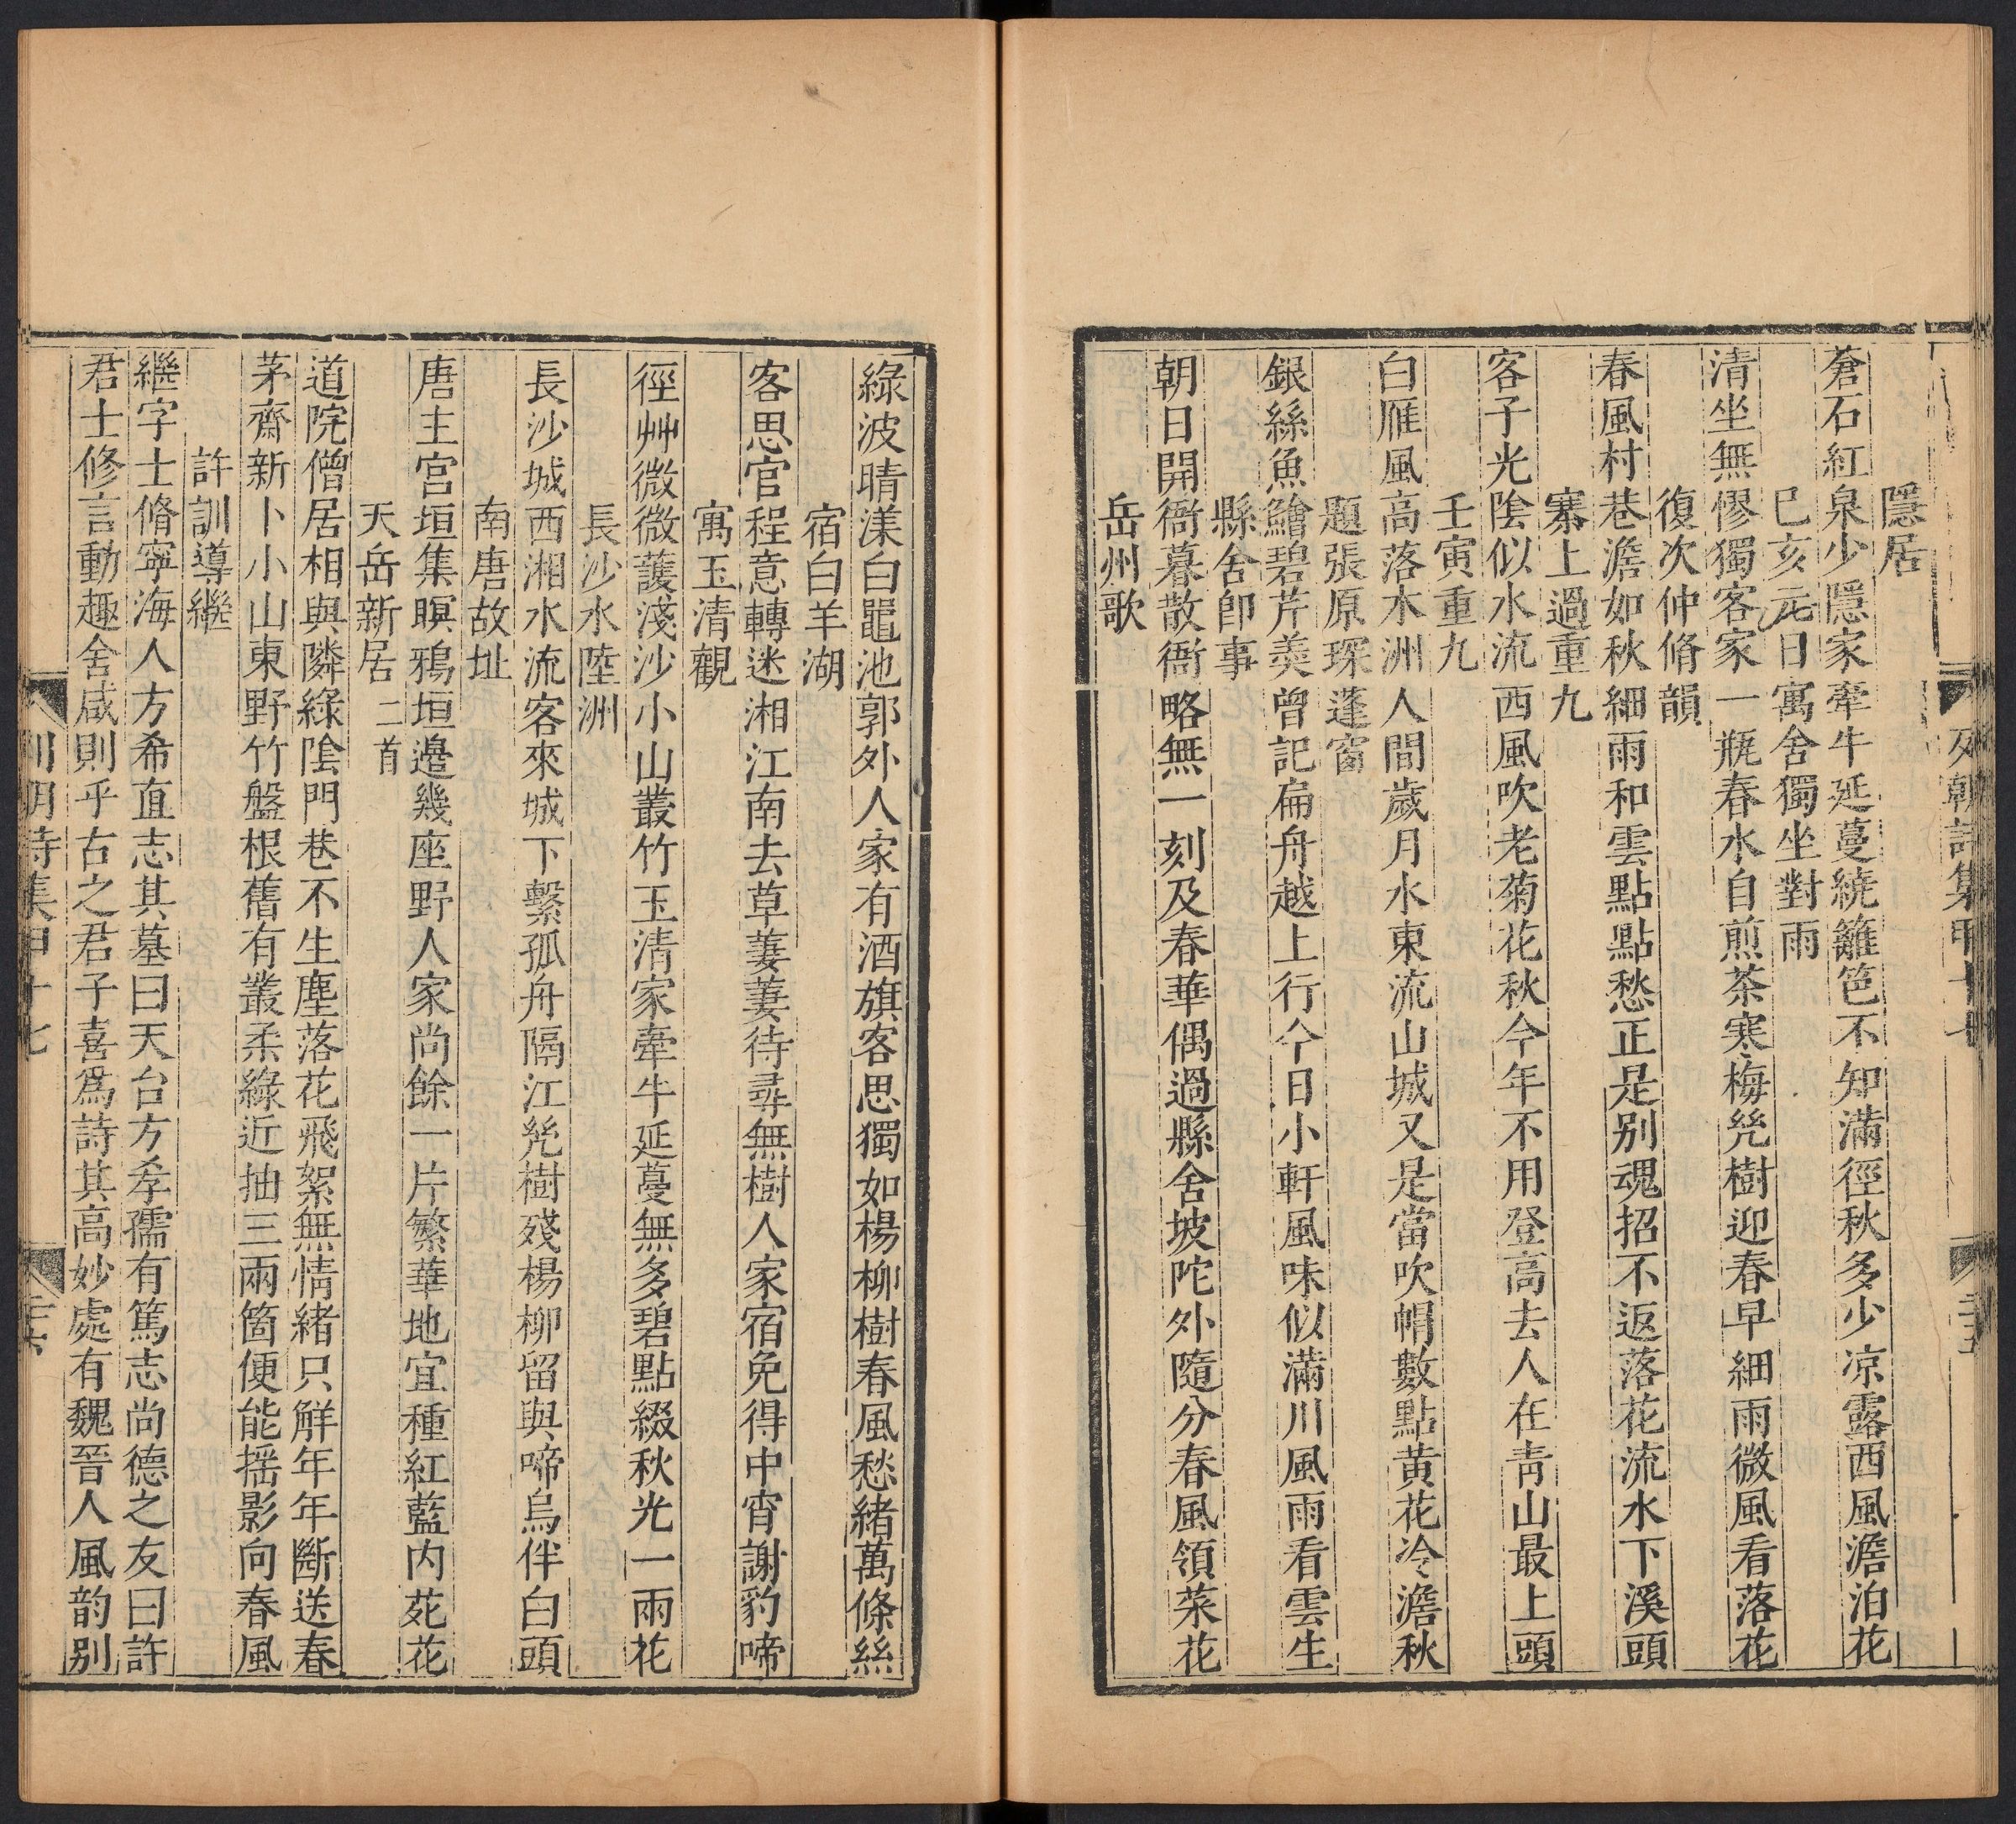 隱居
蒼石紅泉少隱家牽牛延蔓繞籬笆不知滿徑秋多少凉露西風澹泊花
巳亥元日寓舍獨坐對雨
清坐無憀獨客家一瓶春水自煎茶寒梅㡬樹迎春早細雨微風看落花
復次仲脩韻
春風村巷澹如秋細雨和雲點點愁正是别魂招不返落花流水下溪頭
寨上過重九
客子光陰似水流西風吹老菊花秋今年不用登高去人在靑山最上頭
壬寅重九
白雁風高落木洲人間歲月水東流山城又是當吹帽數點黄花冷澹秋
題張原琛蓬窗
銀絲魚鱠碧芹羮曾記扁舟越上行今日小軒風味似滿川風雨看雲生
縣舍卽事
朝日開衙暮散衙略無一刻及春華偶過縣舍坡陀外隨分春風領菜花
岳州歌
綠波晴漾白鼍池郭外人家有酒旗客思獨如楊柳樹春風愁緒萬條絲
宿白羊湖
客思官程意轉迷湘江南去草萋萋待尋無樹人家宿免得中宵謝豹啼
寓玉清觀
徑艸微微護淺沙小山叢竹玉清家牽牛延蔓無多碧點綴秋光一兩花
長沙水陸洲
長沙城西湘水流客來城下繫孤舟隔江㡬樹殘楊柳留與啼烏伴白頭
南唐故址
唐主宫垣集暝鴉垣邉幾座野人家尚餘一片繁華地宜種紅藍内苑花
天岳新居二首
道院僧居相與隣綠陰門巷不生塵落花飛絮無情緒只解年年斷送春
茅齋新卜小山東野竹盤根舊有叢柔綠近抽三兩箇便能摇影向春風
許訓導繼
繼字士脩寧海人方希直志其墓曰天台方孝孺有篤志尚德之友曰許
君士修言動趣舍咸則乎古之君子喜爲詩其高妙處有魏晉人風韵别
列朝詩集甲十七